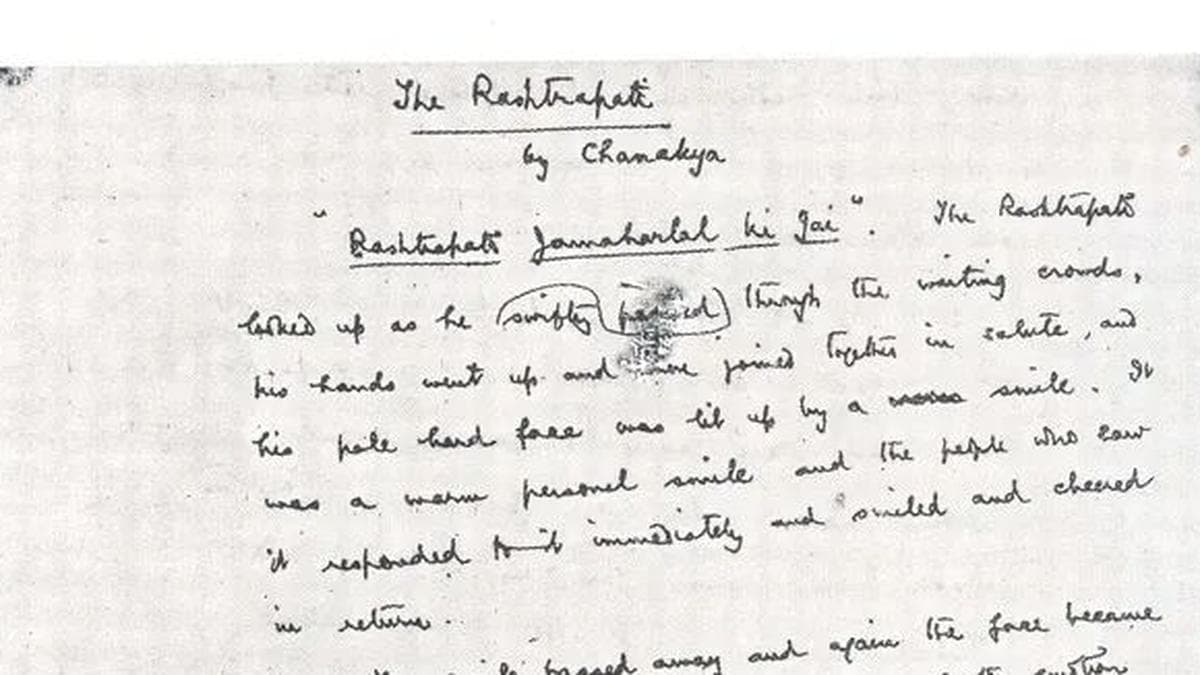 The Rashtrapati
by Chanakya
"Rashtrapati Jawaharlal ki Jai". The Rashtrapati
looked up as he swiftly passed through the waiting crowds,
his hands went up and were joined together in salute, and
his pale hard face was lit up by a smile. It
was a warm personal smile and the people who saw
it responded to it immediately and smiled and cheered
in return
passed away and again the face became